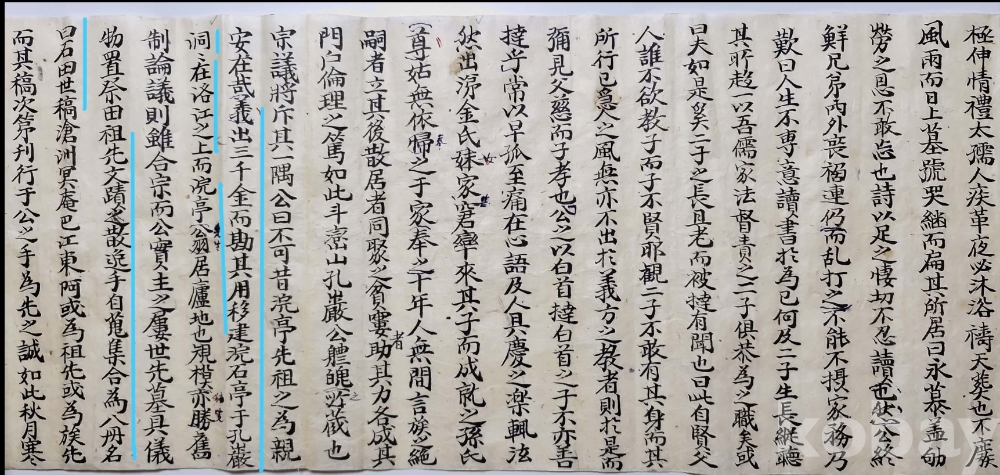 極伸情禮太孺人疾革夜必沐浴禱天葬也不廢
風雨而日上墓號哭繼而扁其所居曰永慕盖劬
勞之思不敢忘也詩以足之悽切不忍讀也然公終
鮮兄弟內外喪禍連仍而乱打之不能不摂家務乃
歎曰人生不專意讀書於爲己何及二子生長縱聽
其所趍一以吾儒家法督責之二子俱恭爲子職矣或
曰夫如是矣二子之長且老而被撻有聞也曰此自賢父
人誰不欲教子而子不賢耶觀二子不敢有其身而其
所行已爲人之風無亦不出於義方之教者則於是而
彌見父慈而子孝也公之以白首撻白首之子不亦善
撻乎常以早孤至痛在心語及人具慶之樂輒泫
然出涕金氏妹家窘率來其子而成就之孫氏
尊姑無依歸之于家奉之十年人無間言族之絶
嗣者立其後散居者同聚之貧窶助其力各成其
門戶倫理之篤如此斗嵒山孔巖公體魄所藏也
宗議將斥其一隅公曰不可昔浣亭先祖之爲親
安在哉義出三千金而勘其用移建浣石亭于孔巖
洞洞在洛江之上而浣亭公翁居廬地也視楔亦勝舊
制論議則雖合宗而公實主之屢世先墓具儀
物置祭田祖先文蹟之散迻手自蒐集合爲八冊名
曰石田世稿滄洲㝠庵巴江東阿或爲祖先或爲族先
而其稿次第刊行于公之手爲先之誠如此秋月寒
kobay